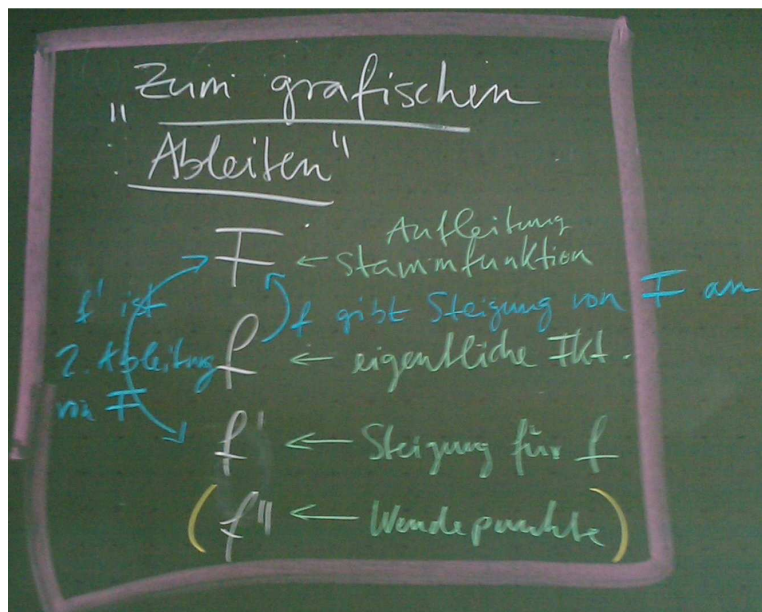 "Zum grafischen
Ableiten"
F ← Aufleitung
Stammfunktion
f gibt Steigung von F an
f' ist
2. Ableitung
von F
f ← eigentliche Fkt.
f' ← Steigung für f
(f'' ← Wendepunkte)